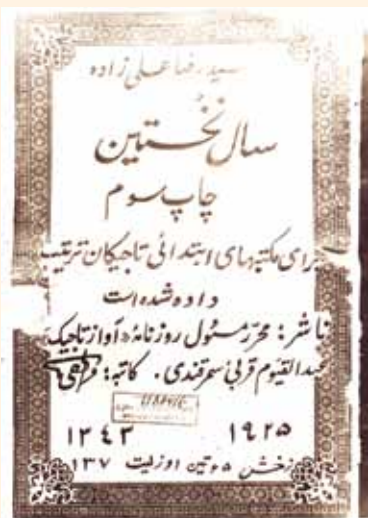 سید رضا علی زاده
سال نخستین
چاپ سوم
برای مکتبهای ابتدائی تاجیکان ترتیب
داده شده است
ناشر: محرر مسئول روزنامهٔ «آواز تاجیک»
عبدالقیوم قربی سمرقندی. کاتب:
۱۹۲۵ ۱۳۴۳
نرخش ۶۵ تین اوزلیت ۱۳۷